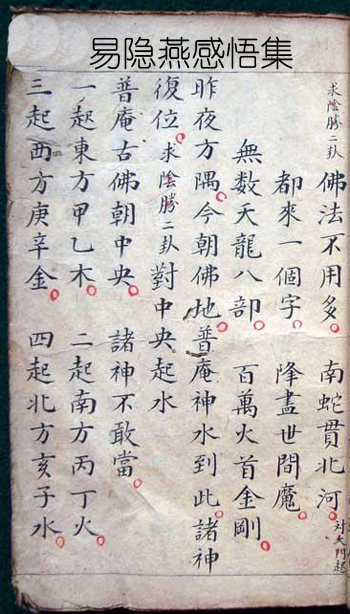 易隐燕感悟集
求陰勝二卦 佛法不用多 南蛇貫北河 対天門起
都來一個字 降盡世間魔
無数天龍八部 百萬火首金剛
昨夜方隅今朝佛地普庵神水到此諸神
復位 求陰勝二卦 對中央起水
普庵古佛朝中央 諸神不敢當
一起東方甲乙木 二起南方丙丁火
三起西方庚辛金 四起北方亥子水